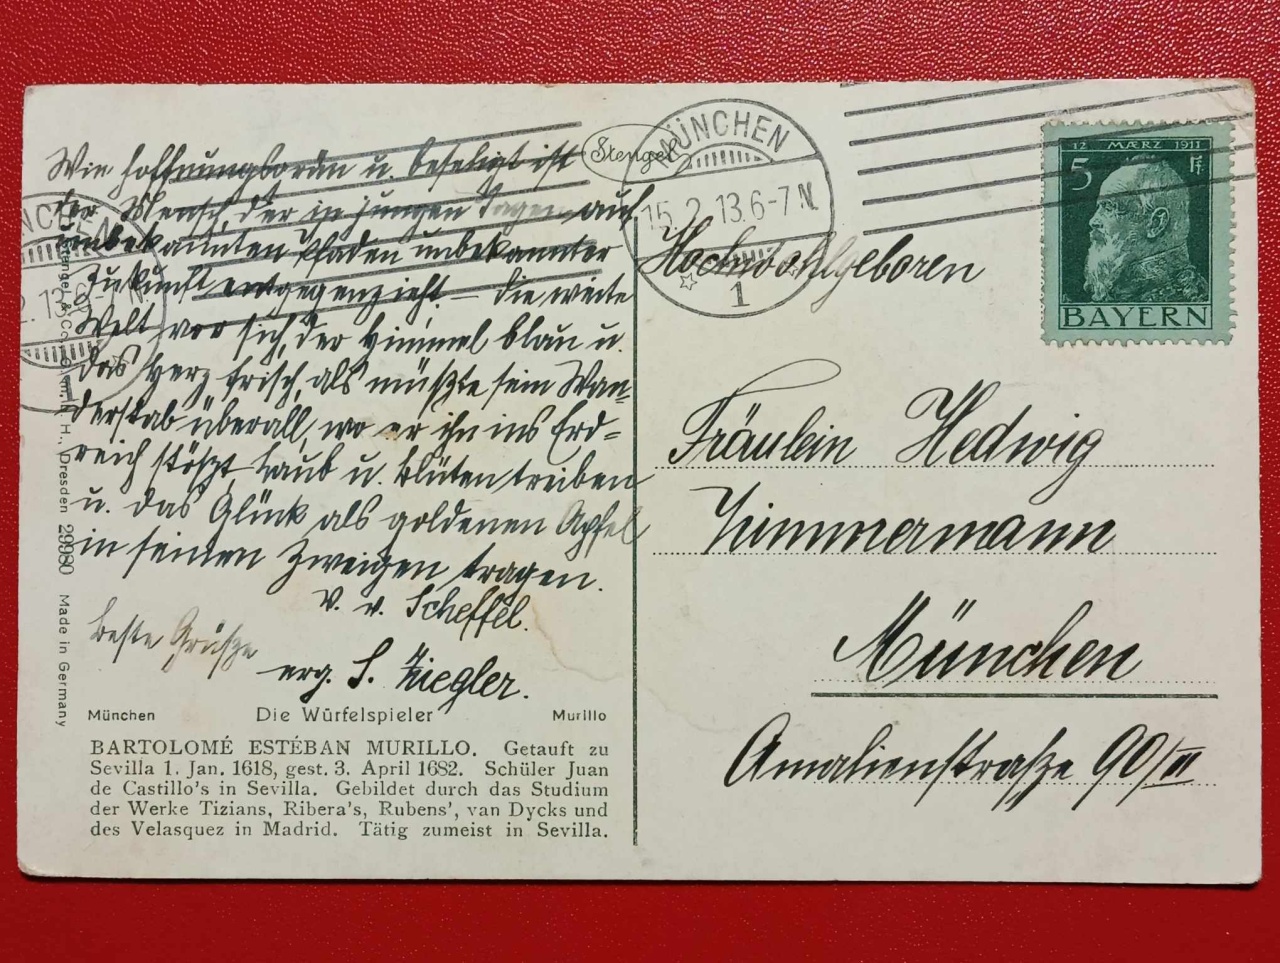 Wie hoffnungsgrün u. beseligt ist
der Mensch, der in jungen Tagen auf
unbekannten Pfaden unbekannter
Zukunft entgegenzieht – die weite
Welt vor sich, der Himmel blau u.
das Herz frisch, als müßte sein Wan-
derstab überall, wo er ihn ins Erd-
reich stößt, Laub u. Blüten treiben
u. das Glück als goldenen Apfel
in seinen Zweigen tragen.
v. v. Scheffel.
Beste Grüße
erg. S. Ziegler.
München Die Würfelspieler Murillo
BARTOLOMÉ ESTÉBAN MURILLO. Getauft zu
Sevilla 1. Jan. 1618, gest. 3. April 1682. Schüler Juan
de Castillo's in Sevilla. Gebildet durch das Studium
der Werke Tizians, Ribera's, Rubens', van Dycks und
des Velasquez in Madrid. Tätig zumeist in Sevilla.
Stengel & Co., G.m.b.H., Dresden 29980 Made in Germany
Stengel
MÜNCHEN
15.2.13.6-7N
1
12 MÆRZ 1911
5 Pf.
BAYERN
Hochwohlgeboren
Fräulein Hedwig
Zimmermann
München
Amalienstraße 90/III